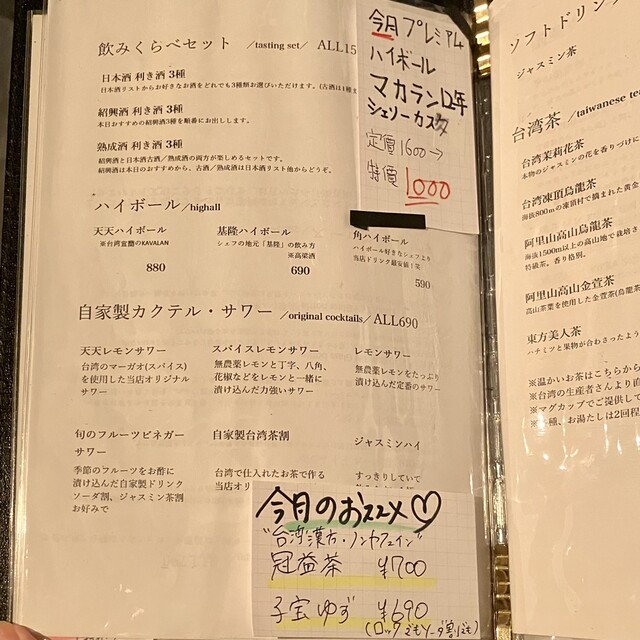 飲みくらべセット /tasting set/ ALL15
日本酒 利き酒 3種
日本酒リストからお好きなお酒をどれでも3種類お選びいただけます。(古酒は1種ま
紹興酒 利き酒 3種
本日おすすめの紹興酒3種を順番にお出しします。
熟成酒 利き酒 3種
紹興酒と日本酒古酒／熟成酒の両方が楽しめるセットです。
紹興酒は本日のおすすめから、古酒／熟成酒は日本酒リスト他からどうぞ。
今月プレミアム
ハイボール
マカラン12年
シェリーカスク
定價1600→
特價 1000
ハイボール/highall
天天ハイボール
※台湾宜蘭のKAVALAN
880
基隆ハイボール
シェフの地元「基隆」の飲み方
※高粱酒
690
角ハイボール
ハイボール好きなシェフより
当店ドリンク最安値！笑
590
自家製カクテル・サワー /original cocktails/ ALL690
天天レモンサワー
台湾のマーガオ(スパイス)
を使用した当店オリジナル
サワー
スパイスレモンサワー
無農薬レモンと丁字、八角、
花椒などをレモンと一緒に
漬け込んだ力強いサワー
レモンサワー
無農薬レモンをたっぷり
漬け込んだ定番のサワー
旬のフルーツビネガー
サワー
季節のフルーツをお酢に
漬け込んだ自家製ドリンク
ソーダ割、ジャスミン茶割
お好みで
自家製台湾茶割
台湾で仕入れたお茶で作る
当店オリ
ジャスミンハイ
すっきりしていて
今月のおススメ♡
"台湾漢方・ノンカフェイン"
冠益茶 ¥700
子宝ゆず ¥690
(ロックでもソーダ割でも)
ソフトドリン
ジャスミン茶
台湾茶 /taiwanese tea
台湾茉莉花茶
本物のジャスミンの花を香りづけに
台湾凍頂烏龍茶
海抜800mの凍頂村で摘まれた黄金
阿里山高山烏龍茶
海抜1500m以上の高山地で栽培さ
特級茶。香り格別。
阿里山高山金萱茶
高山茶葉を使用した金萱茶(烏龍茶
東方美人茶
ハチミツと果物が合わさったよう
※温かいお茶はこちらから
※台湾の生産者さんより直
※マグカップでご提供して
種、お湯たしは2回程